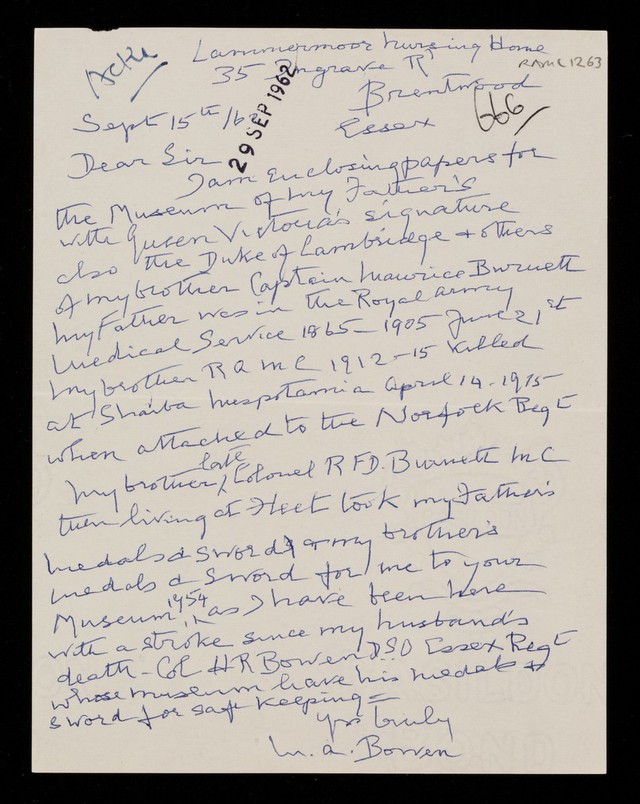 Ackd
Lammermoor Nursing Home
35 Ingrave Rd
RAMC 1263
Brentwood
666
Essex
Sept 15th/62
29 SEP 1962
Dear Sir
I am enclosing papers for
the Museum of my Father's
with Queen Victoria's signature
also the Duke of Cambridge & others
of my brother Captain Maurice Burnett
My Father was in the Royal Army
Medical Service 1865-1905 June 21st
My brother R A M C 1912-15 killed
at Shaiba Mespotamia April 14-1915
when attached to the Norfolk Regt
My brother, late Colonel R F D. Burnett MC
then living at Fleet took my Father's
medals & sword & my brother's
medals & sword for me to your
Museum in 1954 as I have been here
with a stroke since my husband's
death - Col H R Bowen DSO Essex Regt
whose museum have his medals &
sword for safe keeping =
Yrs truly
M. A. Bowen